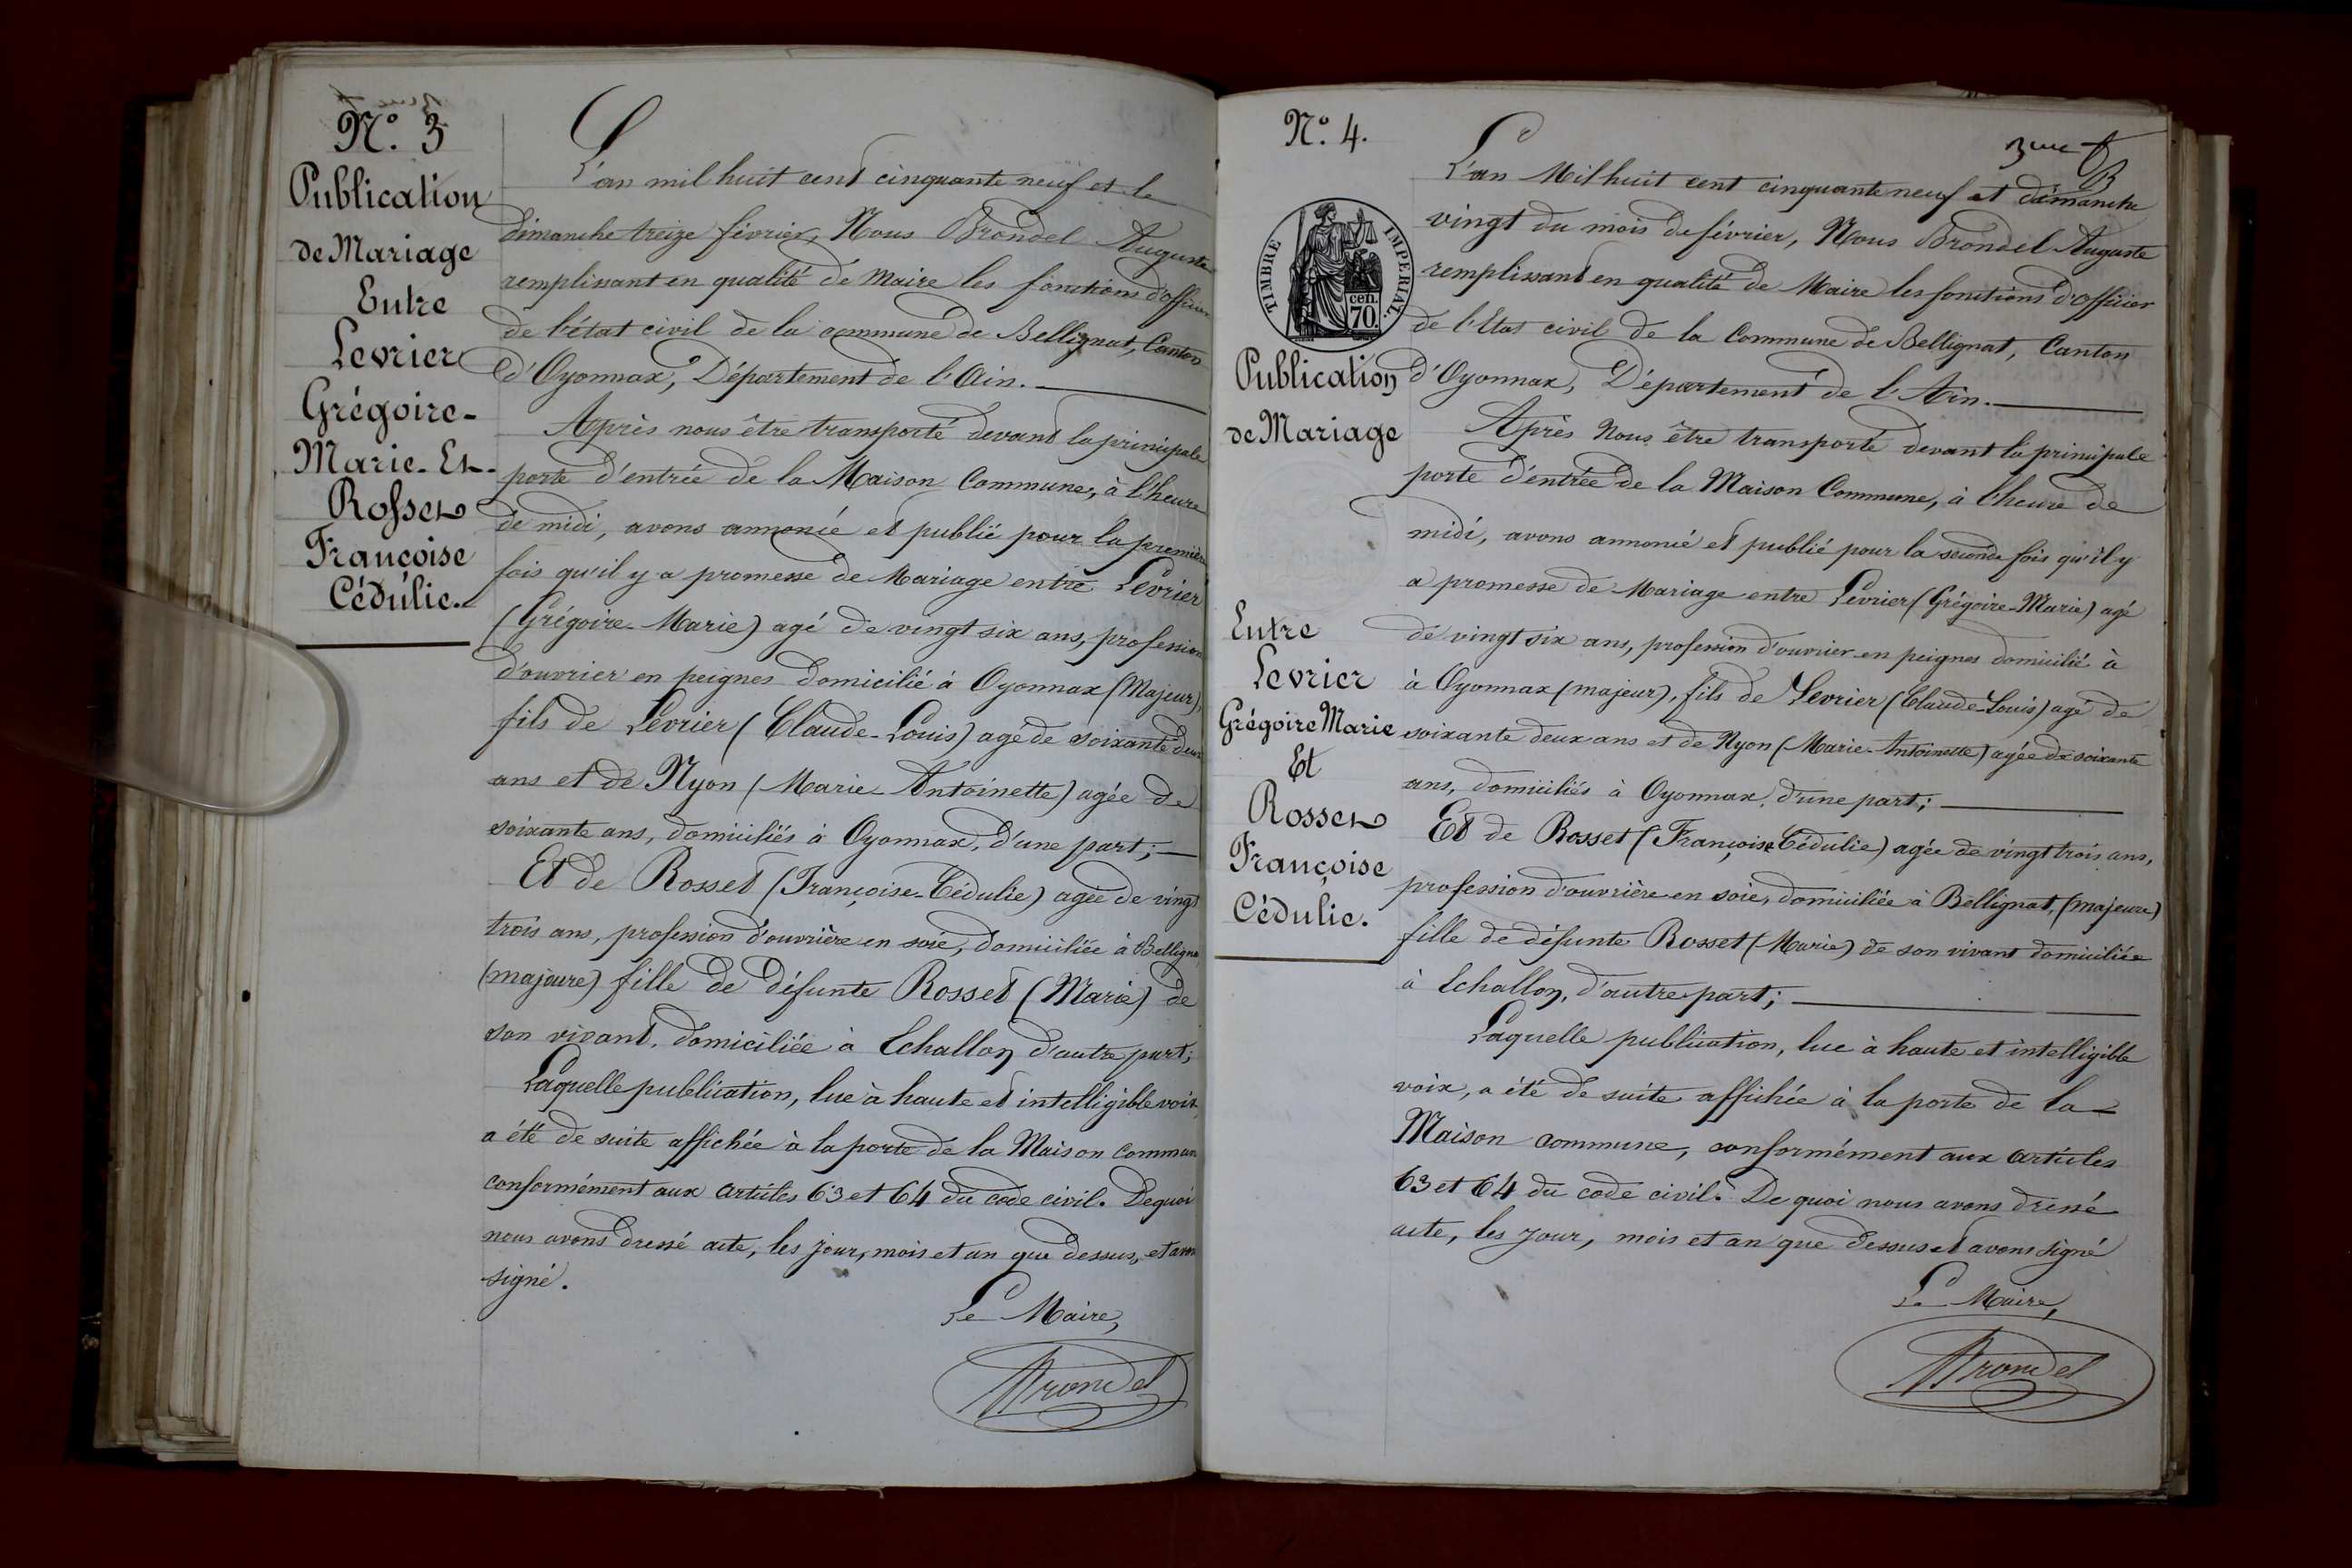 N.º 3
Publication
de Mariage
Entre
Levrier
Grégoire-
Marie-Et-
Rosset
Françoise
Cédulie.
L'an mil huit cent cinquante neuf et le
dimanche treize février, Nous Brondel Auguste
remplissant en qualité de Maire les fonctions d'officier
de l'état civil de la commune de Bellignat, Canton
d'Oyonnax, Département de l'Ain.
Après nous être transporté devant la principale
porte d'entrée de la Maison Commune, à l'heure
de midi, avons annoncé et publié pour la première
fois qu'il y a promesse de Mariage entre Levrier
(Grégoire-Marie) agé de vingt six ans, profession
d'ouvrier en peignes domicilié à Oyonnax (Majeur),
fils de Levrier (Claude-Louis) agé de soixante deux
ans et de Nyon (Marie-Antoinette) agée de
soixante ans, domiciliés à Oyonnax, d'une part;
Et de Rosset (Françoise-Cédulie) agée de vingt
trois ans, profession d'ouvrière en soie, domiciliée à Bellignat
(majeure) fille de défunte Rosset (Marie) de
son vivant domiciliée à Echallon d'autre part;
Laquelle publication, lue à haute et intelligible voix,
a été de suite affichée à la porte de la Maison commune
conformément aux articles 63 et 64 du code civil. De quoi
nous avons dressé acte, les jour, mois et an que dessus, et avons
signé.
Le Maire,
Brondel
N.º 4.
3me f
B
TIMBRE IMPERIAL.
cen.
70.
Publication
de Mariage
Entre
Levrier
Grégoire Marie
Et
Rosset
Françoise
Cédulie.
L'an Mil huit cent cinquante neuf et dimanche
vingt du mois de février, Nous Brondel Auguste
remplissant en qualité de Maire les fonctions d'officier
de l'Etat civil de la Commune de Bellignat, Canton
d'Oyonnax, Département de l'Ain.
Après Nous être transporté devant la principale
porte d'entrée de la Maison Commune, à l'heure de
midi, avons annoncé et publié pour la seconde fois qu'il y
a promesse de Mariage entre Levrier (Grégoire-Marie) agé
de vingt six ans, profession d'ouvrier en peignes domicilié à
à Oyonnax (majeur), fils de Levrier (Claude-Louis) agé de
soixante deux ans et de Nyon (Marie-Antoinette) agée de soixante
ans, domiciliés à Oyonnax, d'une part;
Et de Rosset (Françoise Cédulie) agée de vingt trois ans,
profession d'ouvrière en soie, domiciliée à Bellignat, (majeure)
fille de défunte Rosset (Marie) de son vivant domiciliée
à Echallon, d'autre part;
Laquelle publication, lue à haute et intelligible
voix, a été de suite affichée à la porte de la
Maison commune, conformément aux articles
63 et 64 du code civil. De quoi nous avons dressé
acte, les jour, mois et an que dessus et avons signé
Le Maire,
Brondel